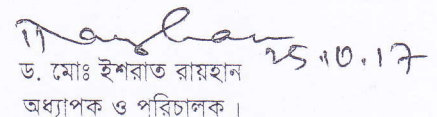 25.10.17
ড. মোঃ ইশরাত রায়হান
অধ্যাপক ও পরিচালক।